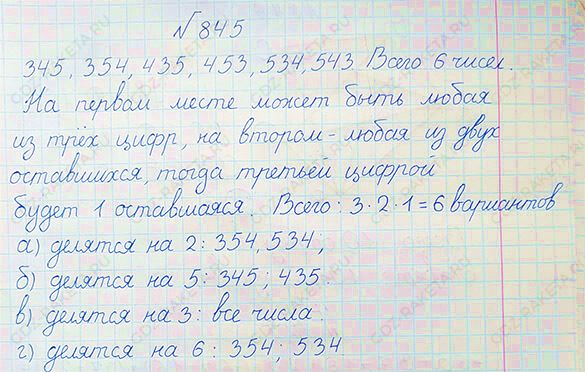 № 845
345, 354, 435, 453, 534, 543. Всего 6 чисел.
На первом месте может быть любая
из трёх цифр, на втором - любая из двух
оставшихся, тогда третьей цифрой
будет 1 оставшаяся. Всего: 3 · 2 · 1 = 6 вариантов
а) делятся на 2: 354, 534;
б) делятся на 5: 345; 435.
в) делятся на 3: все числа
г) делятся на 6: 354; 534